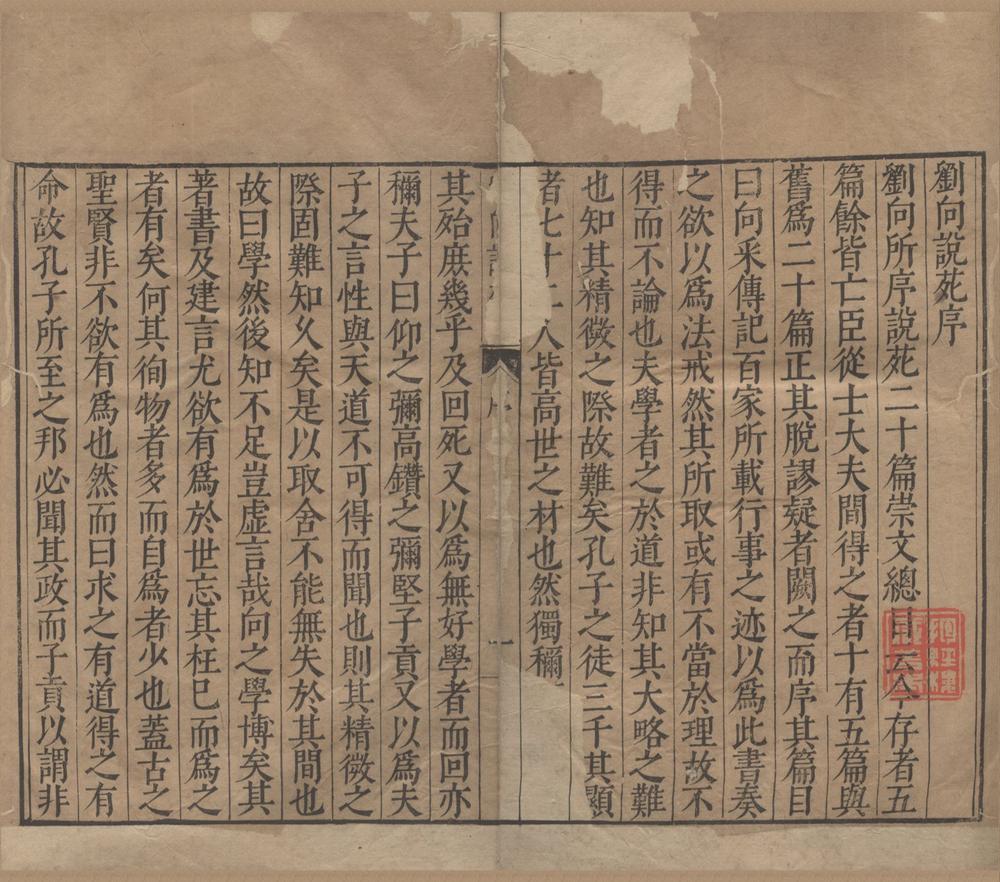 劉向說苑序
劉向所序說苑二十篇崇文總目云今存者五
篇餘皆亡臣從士大夫間得之者十有五篇與
舊爲二十篇正其脫謬疑者闕之而序其篇目
曰向采傳記百家所載行事之迹以爲此書奏
之欲以爲法戒然其所取或有不當於理故不
得而不論也夫學者之於道非知其大略之難
也知其精微之際故難矣孔子之徒三千其顯
者七十二人皆高世之材也然獨稱
序 一
其殆庶幾乎及回死又以爲無好學者而回亦
稱夫子曰仰之彌高鑽之彌堅子貢又以爲夫
子之言性與天道不可得而聞也則其精微之
際固難知久矣是以取舍不能無失於其間也
故曰學然後知不足豈虛言哉向之學博矣其
著書及建言尤欲有爲於世忘其枉已而爲之
者有矣何其徇物者多而自爲者少也蓋古之
聖賢非不欲有爲也然而曰求之有道得之有
命故孔子所至之邦必聞其政而子貢以謂非